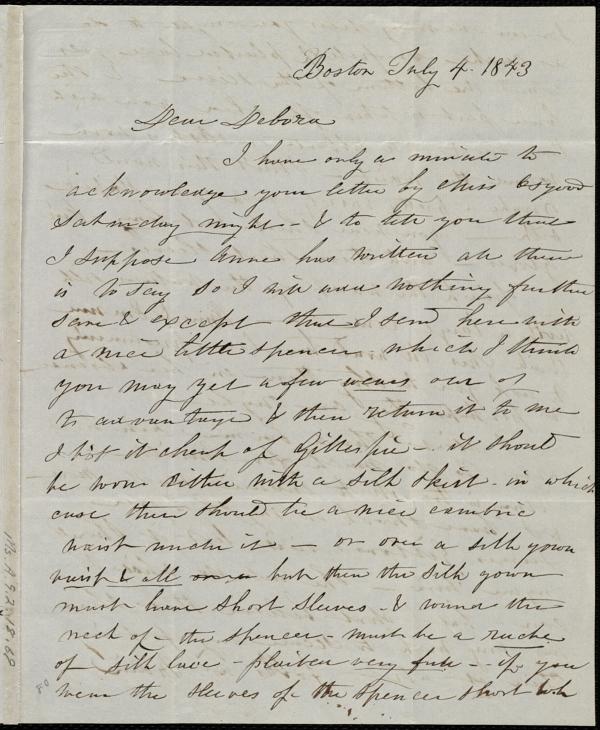 Boston July 4. 1843
Dear Debora
I have only a minute to
acknowledge your letter by Miss Osgood
Saturday night - & to tell you that
I suppose Anne has written all there
is to say So I will add nothing further
save & except that I send herewith
a nice little spencer which I think
you may get a few wears out of
to advantage & then return it to me
I bot it cheap of Gillespie - it should
be worn either with a silk skirt - in which
case there should be a nice cambric
waist under it - or over a silk gown
waist & all but then the silk gown
must have short sleeves - & round the
neck of the spencer - must be a ruche
of silk lace - plaited very full - - if you
wear the sleeves of the spencer short
Ms. A. 9. 2. 18. 68